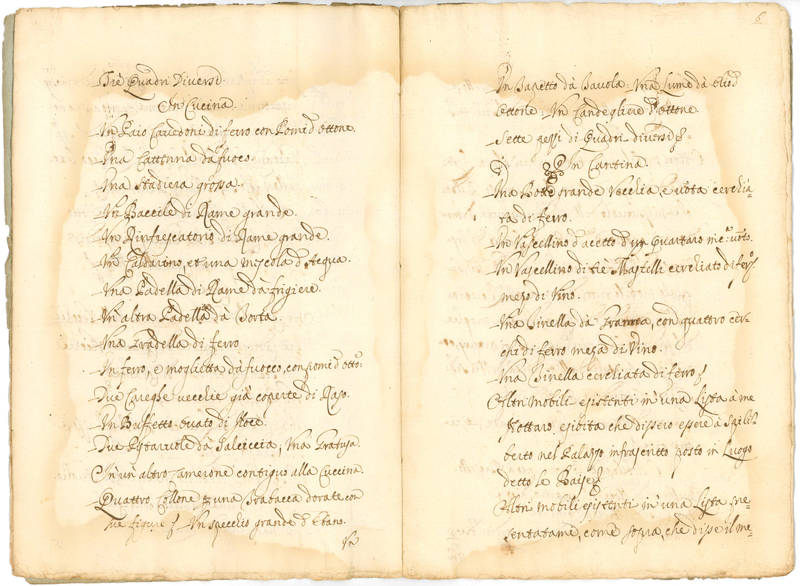 Trè Quadri Diversi.
In Cucina.
Un Paio Cavedoni di ferro con Pomi d'ottone.
Una Cattenna dà fuoco.
Una Stadiera grossa.
Un Baccile di Rame grande.
Un Rinfrescatorio di Rame grande.
Un Caldarino, et una mescola d'Acqua.
Una Padella di Rame dà frigiere.
Un'altra Padella dà Torta.
Una Gradella di ferro.
Un ferro, e moglietta dà fuoco, con pomi d'otto:
Due Careghe vecchie già coperte di Raso.
Un Buffetto ovato di Noce.
Due da Salciccia, Una Gratusa.
In un'altro Camerone contiguo alla Cuccina.
Quattro Collone una Trabacca dorate con
sue figure Un specchio grande d'Ebano.
Un
6
Un dà Tavola Una Lume dà Olio d'
Ottone Un Candegliere d'Ottone.
Sette pezzi di Quadri diversi
In Cantina.
Una Botte grande Vecchia, e vota cerchia=
ta di ferro.
Un Vascellino d'aceto d'un Quartaro mezo voto.
Un Vascellino di trè Mastelli cerchiato di ferro
mezo di Vino.
Una Pinella dà con quattro cer=
chi di ferro meza di Vino.
Una Pinella cerchiata di ferro
Altri mobili esistenti in una Lista à me
Nottaro esibita che dissero essere à
berto nel Palazzo infrascritto posto in Luogo
detto le
Altri mobili esistenti in una Lista
sentatami, come sopra, che disse il me=